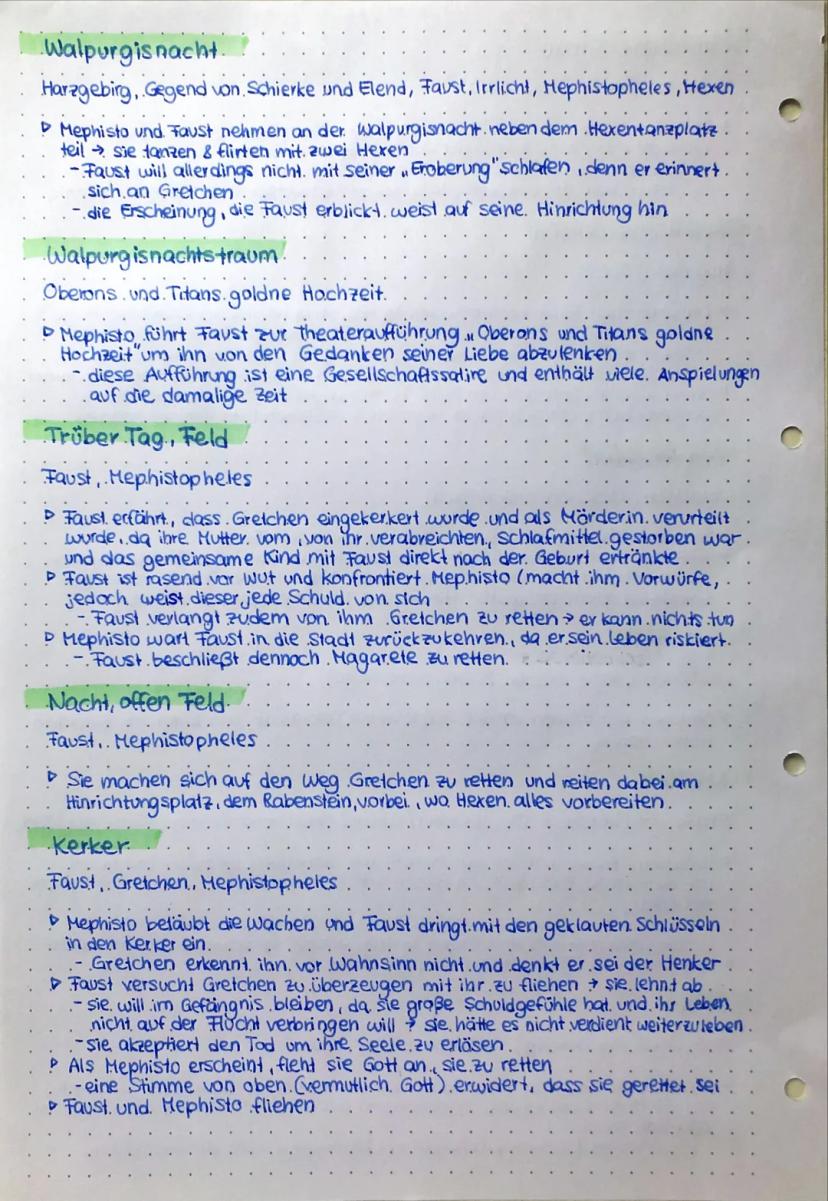 Walpurgisnacht
Harzgebirg, Gegend von Schierke und Elend, Faust, Irrlicht, Mephistopheles, Hexen
▷ Mephisto und Faust nehmen an der Walpurgisnacht neben dem Hexentanzplatz
teil → sie tanzen & flirten mit zwei Hexen
- Faust will allerdings nicht mit seiner „Eroberung" schlafen, denn er erinnert
sich an Gretchen
- die Erscheinung, die Faust erblickt weist auf seine Hinrichtung hin
Walpurgisnachtstraum
Oberons und Titans goldne Hochzeit
▷ Mephisto führt Faust zur Theateraufführung „Oberons und Titans goldne
Hochzeit" um ihn von den Gedanken seiner Liebe abzulenken
- diese Aufführung ist eine Gesellschaftssatire und enthält viele Anspielungen
auf die damalige Zeit
Trüber Tag, Feld
Faust, Mephistopheles
▷ Faust erfährt, dass Gretchen eingekerkert wurde und als Mörderin verurteilt
wurde, da ihre Mutter vom, von ihr verabreichten, Schlafmittel gestorben war
und das gemeinsame Kind mit Faust direkt nach der Geburt ertränkte
▷ Faust ist rasend vor Wut und konfrontiert Mephisto (macht ihm Vorwürfe,
jedoch weist dieser jede Schuld von sich
- Faust verlangt zudem von ihm Gretchen zu retten → er kann nichts tun
▷ Mephisto wart Faust in die Stadt zurückzukehren, da er sein Leben riskiert.
- Faust beschließt dennoch Magarete zu retten.
Nacht, offen Feld
Faust, Mephistopheles
▷ Sie machen sich auf den Weg Gretchen zu retten und reiten dabei am
Hinrichtungsplatz, dem Rabenstein, vorbei, wo Hexen alles vorbereiten.
Kerker
Faust, Gretchen, Mephistopheles
▷ Mephisto betäubt die Wachen und Faust dringt mit den geklauten Schlüsseln
in den Kerker ein.
- Gretchen erkennt ihn vor Wahnsinn nicht und denkt er sei der Henker
▷ Faust versucht Gretchen zu überzeugen mit ihr zu fliehen → sie lehnt ab
- sie will im Gefängnis bleiben, da sie große Schuldgefühle hat und ihr Leben
nicht auf der Flucht verbringen will → sie hätte es nicht verdient weiterzuleben
- sie akzeptiert den Tod um ihre Seele zu erlösen
▷ Als Mephisto erscheint, fleht sie Gott an, sie zu retten
- eine Stimme von oben (vermutlich Gott) erwidert, dass sie gerettet sei
▷ Faust und Mephisto fliehen